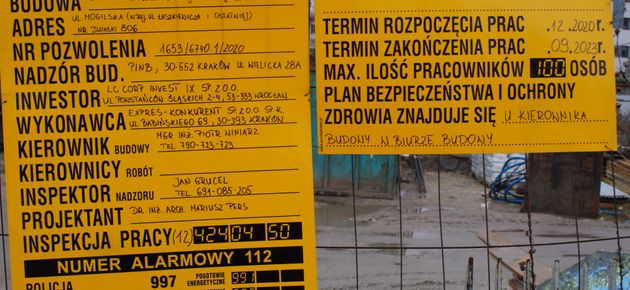 BUDOWA
ADRES UL MOGILSKA (
NR DZIAŁKI 806
NR POZWOLENIA 1653/6740.1/2020
NADZÓR BUD. PINB, 30-552 KRAKÓW UL WIELICKA 28A
INWESTOR LC CORP INVEST IX SP. Z O.O.
UL POWSTAŃCÓW ŚLĄSKICH 2-4, 53-333 WROCŁAW
WYKONAWCA EXPRES-KONKURENT SP. Z O.O. SP. K
UL BABIŃSKIEGO 69, 30-393 KRAKÓW
KIEROWNIK BUDOWY MGR INŻ. PIOTR WINIARZ
TEL 790-723-729
KIEROWNICY ROBÓT
INSPEKTOR NADZORU JAN GRUCEL
TEL. 691-085-205
PROJEKTANT DR INŻ. ARCH. MARIUSZ PERS
INSPEKCJA PRACY (12) 4240450
NUMER ALARMOWY 112
POLICJA 997 POGOTOWIE ENERGETYCZNE 991
TERMIN ROZPOCZĘCIA PRAC 12.2020r.
TERMIN ZAKOŃCZENIA PRAC 09.2023r.
MAX. ILOŚĆ PRACOWNIKÓW 100 OSÓB
PLAN BEZPIECZEŃSTWA I OCHRONY
ZDROWIA ZNAJDUJE SIĘ U KIEROWNIKA
BUDOWY W BIURZE BUDOWY